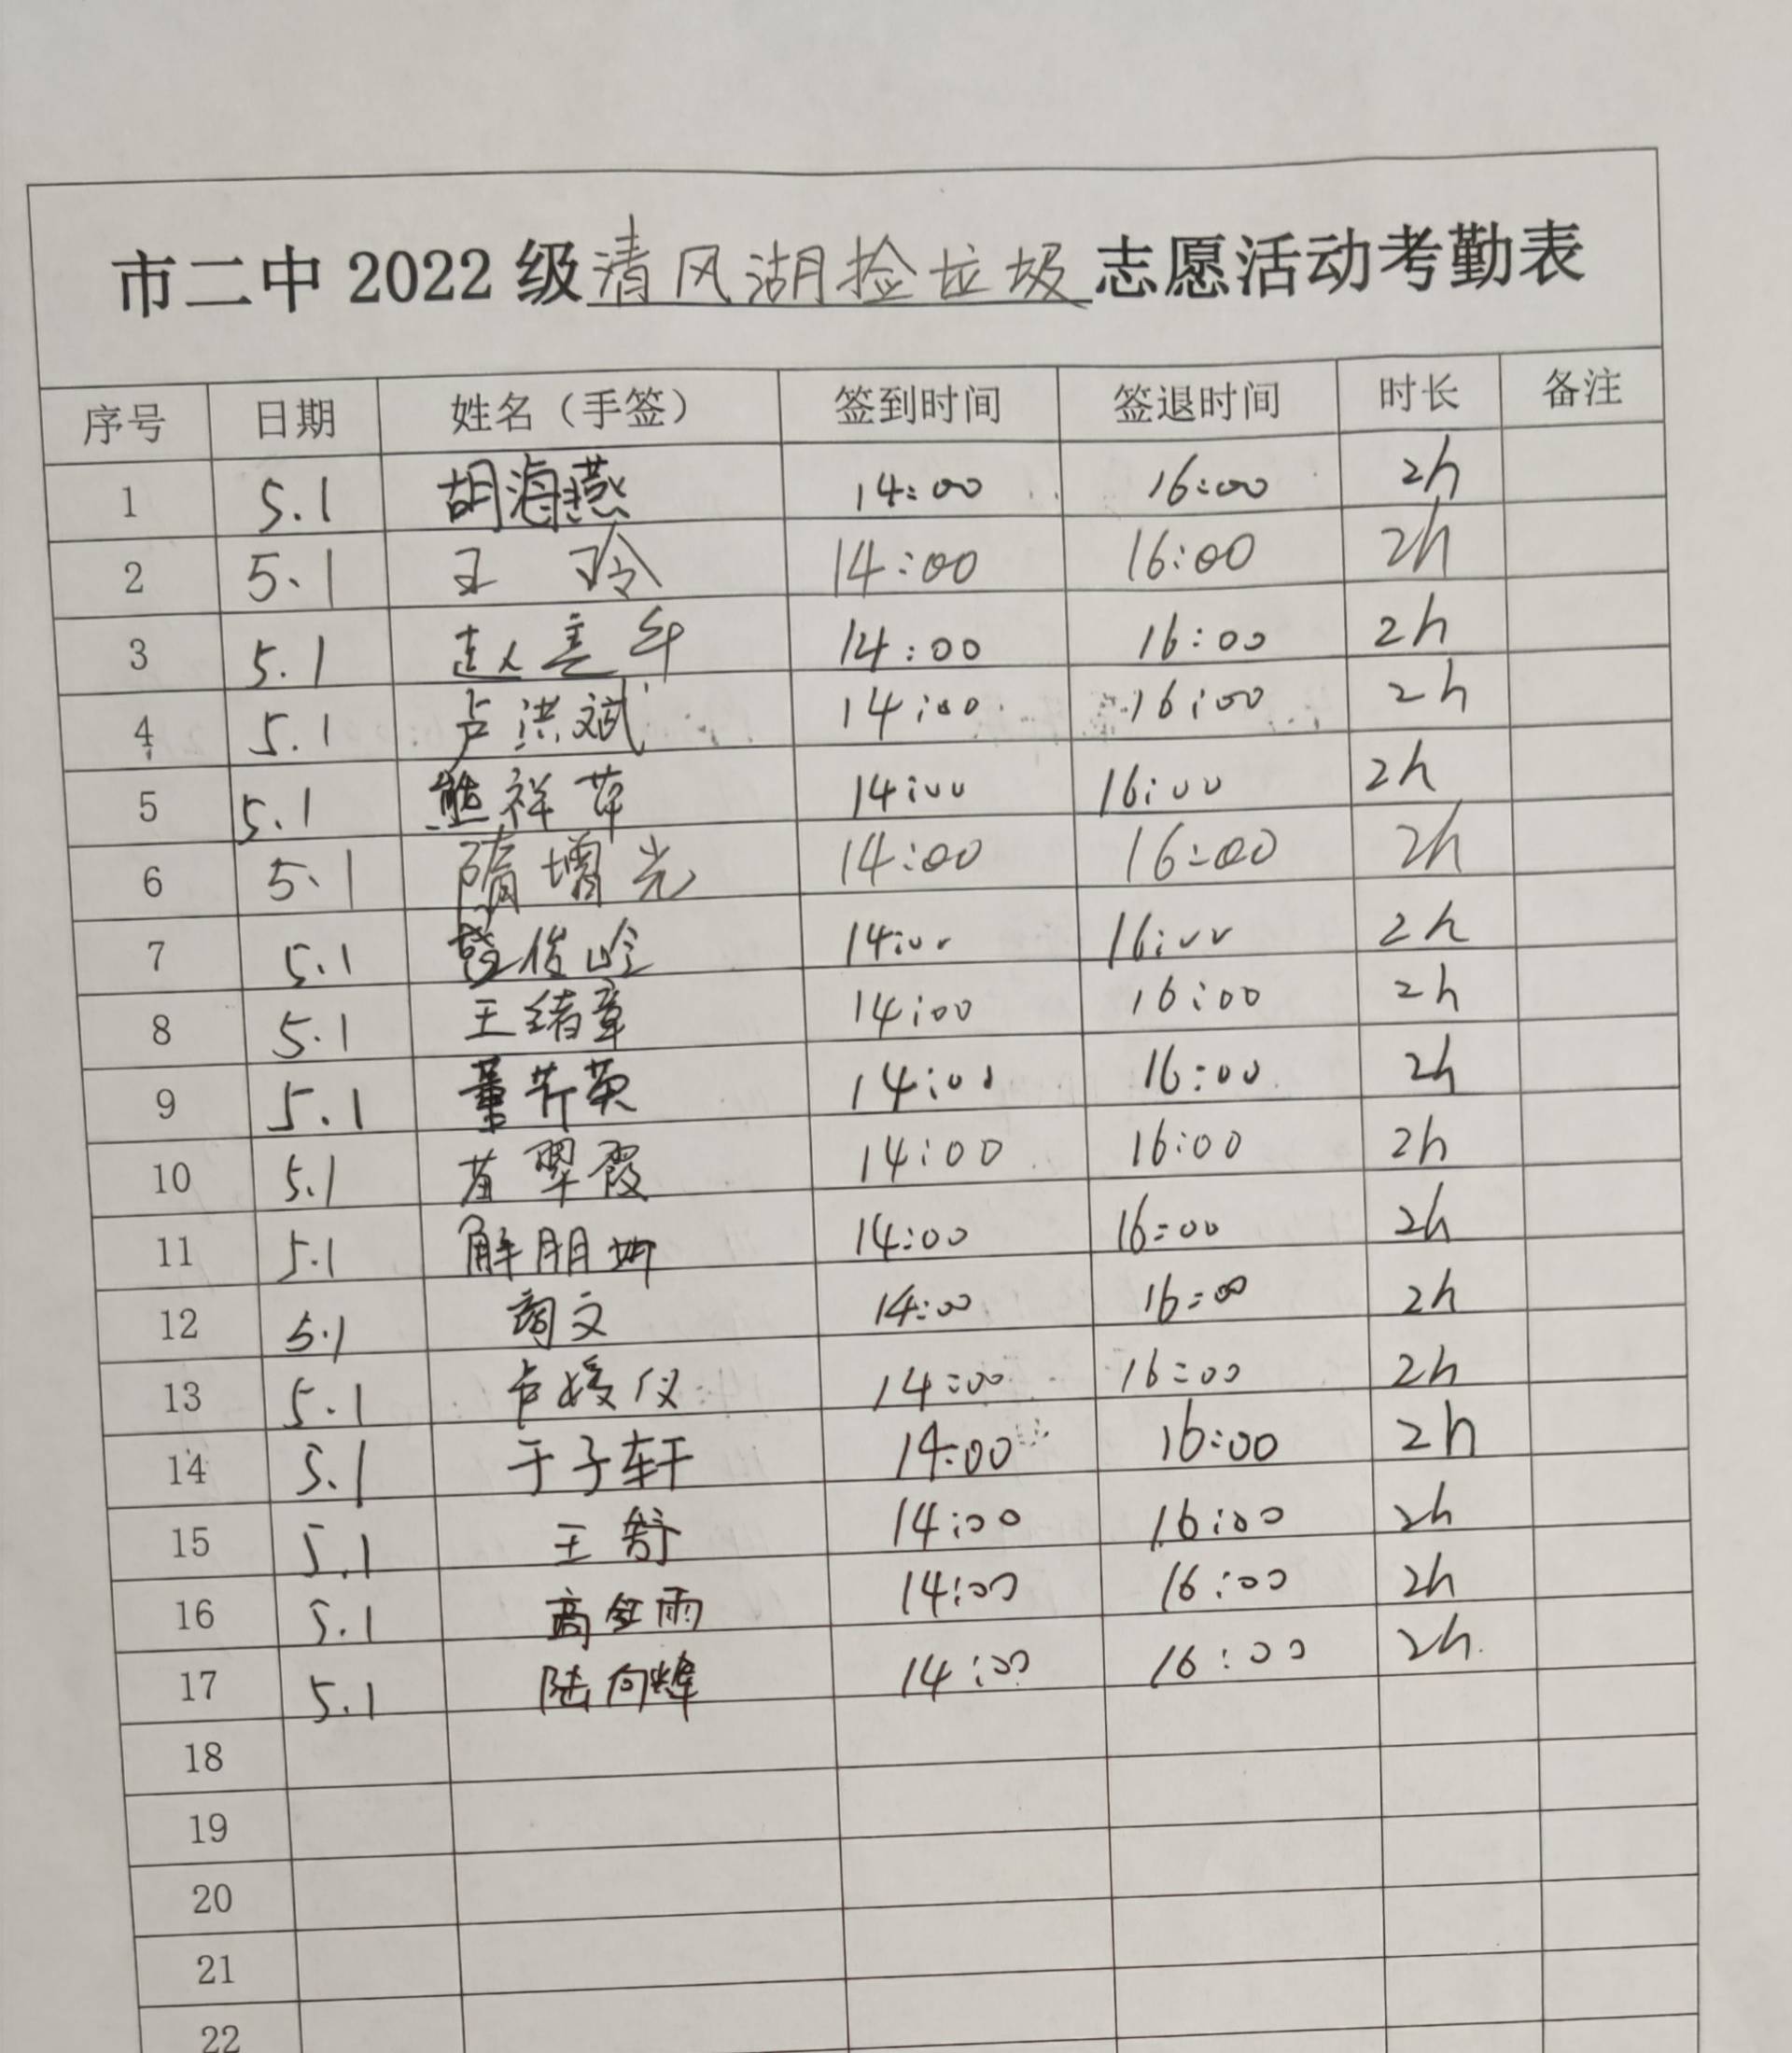 市二中2022级清风湖捡垃圾志愿活动考勤表
序号 日期 姓名（手签） 签到时间 签退时间 时长 备注
1 5.1 胡海燕 14:00 16:00 2h
2 5.1 王玲 14:00 16:00 2h
3 5.1 赵 14:00 16:00 2h
4 5.1 卢洪斌 14:00 16:00 2h
5 5.1 熊祥苹 14:00 16:00 2h
6 5.1 隋增光 14:00 16:00 2h
7 5.1 俊岭 14:00 16:00 2h
8 5.1 王绪章 14:00 16:00 2h
9 5.1 董芹英 14:00 16:00 2h
10 5.1 苗翠霞 14:00 16:00 2h
11 5.1 解朋坤 14:00 16:00 2h
12 5.1 文 14:00 16:00 2h
13 5.1 卢媛仪 14:00 16:00 2h
14 5.1 于子轩 14:00 16:00 2h
15 5.1 王舒 14:00 16:00 2h
16 5.1 高金雨 14:00 16:00 2h
17 5.1 陆向烽 14:00 16:00 2h
18
19
20
21
22